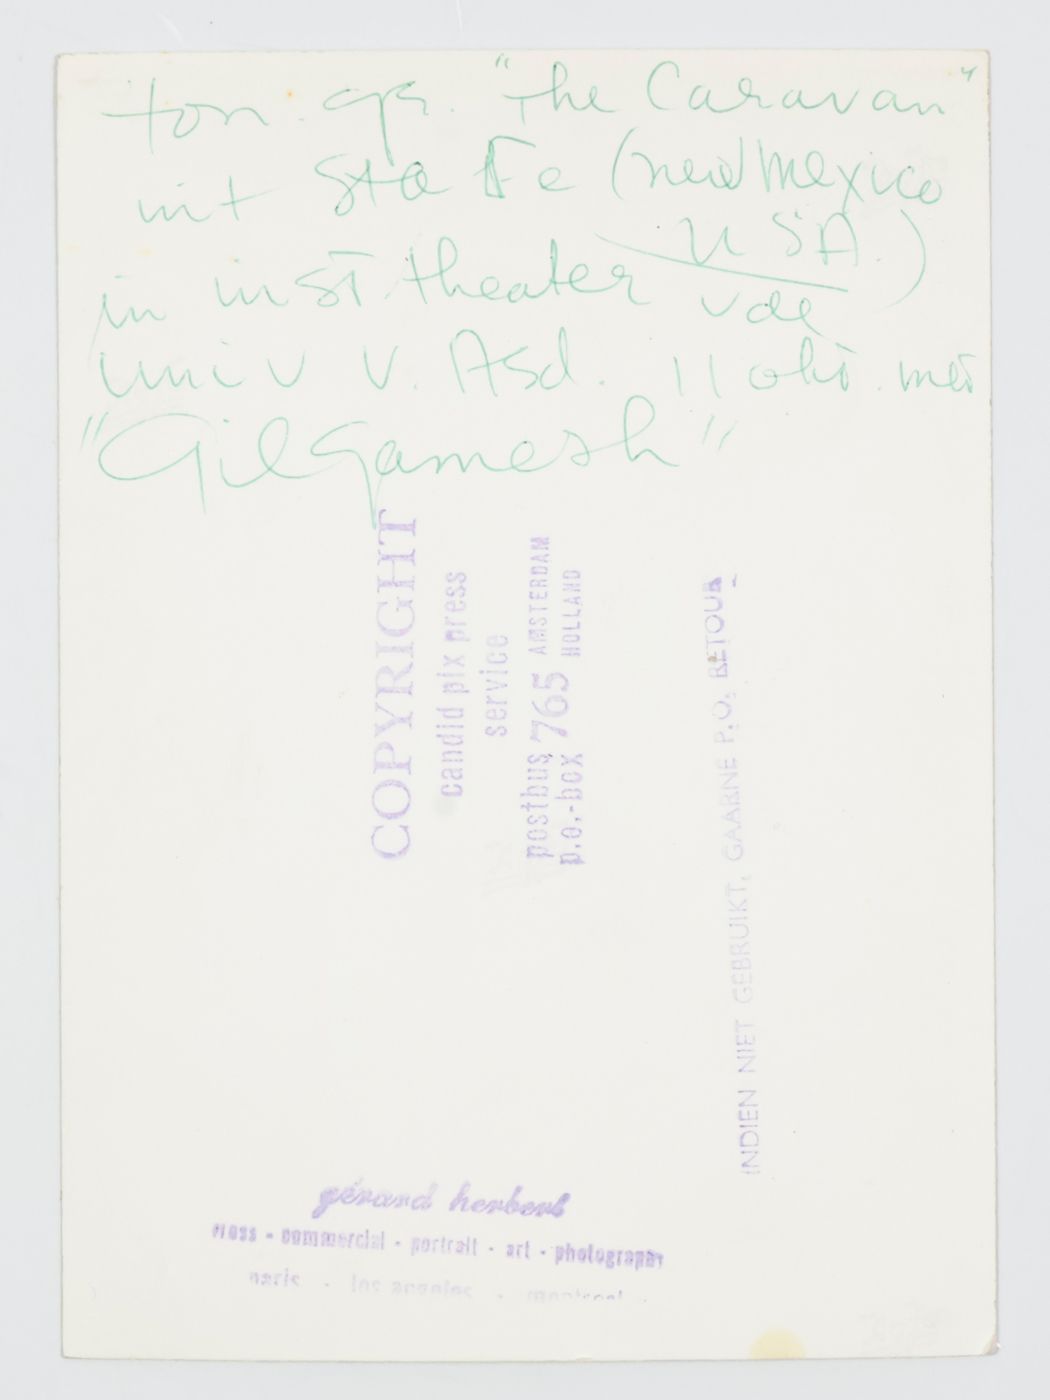 ton. gr. "The Caravan"
uit Sta Fe (new Mexico
USA.)
in inst. theater vde
Univ v. Asd. 11 okt. met
"Gilgamesh"
COPYRIGHT
candid pix press
service
postbus 765 AMSTERDAM
p.o.-box HOLLAND
INDIEN NIET GEBRUIKT, GAARNE P.O. RETOUR
gérard herbert
press - commercial - portrait - art - photographer
paris - los angeles - montreal -